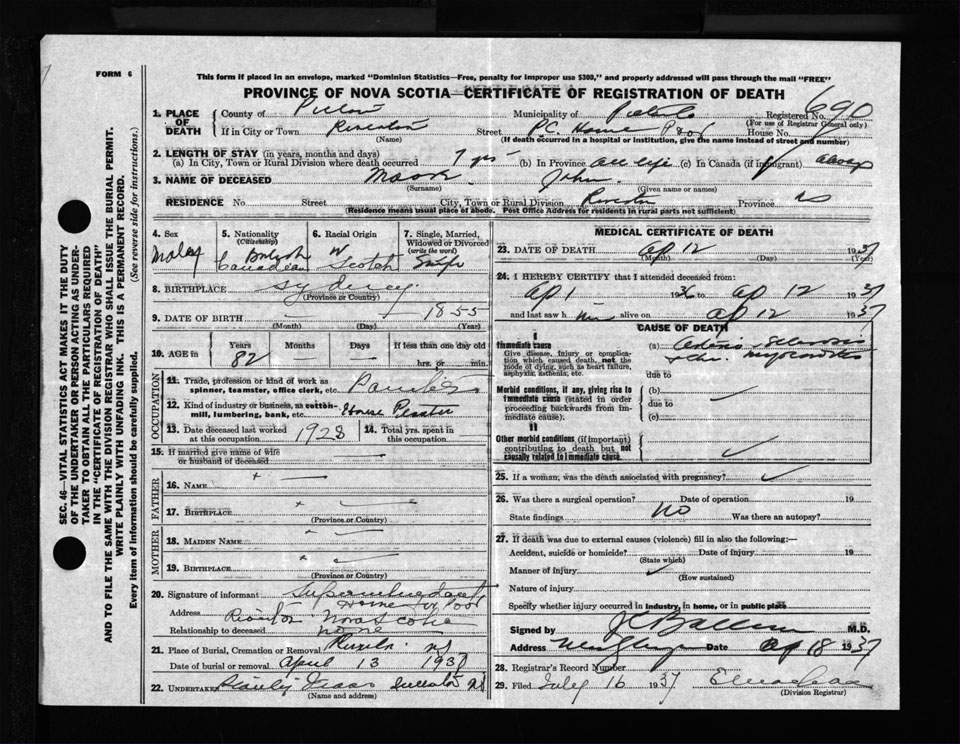 FORM 6
This form if placed in an envelope, marked "Dominion Statistics—Free, penalty for improper use $300," and properly addressed will pass through the mail "FREE"
PROVINCE OF NOVA SCOTIA—CERTIFICATE OF REGISTRATION OF DEATH
1. PLACE OF DEATH County of Pictou Municipality of Registered No. 690
(For use of Registrar General only)
If in City or Town Riverton Street P.C. Home Poor House No.
(Name) (If death occurred in a hospital or institution, give the name instead of street and number)
2. LENGTH OF STAY (in years, months and days)
(a) In City, Town or Rural Division where death occurred 7 yrs (b) In Province all life (c) In Canada (if immigrant) always
3. NAME OF DECEASED John
(Surname) (Given name or names)
RESIDENCE No. Street City, Town or Rural Division Riverton Province NS
(Residence means usual place of abode. Post Office Address for residents in rural parts not sufficient)
4. Sex Male
5. Nationality (Citizenship) British Canadian
6. Racial Origin Scotch
7. Single, Married, Widowed or Divorced (write the word) Single
8. BIRTHPLACE
(Province or Country)
9. DATE OF BIRTH 1855
(Month) (Day) (Year)
10. AGE in Years Months Days If less than one day old
82 hrs. or min.
OCCUPATION
11. Trade, profession or kind of work as spinner, teamster, office clerk, etc. Painter
12. Kind of industry or business, as cotton-mill, lumbering, bank, etc. House
13. Date deceased last worked at this occupation 1928 14. Total yrs. spent in this occupation
15. If married give name of wife or husband of deceased
FATHER
16. NAME
17. BIRTHPLACE
(Province or Country)
MOTHER
18. MAIDEN NAME
19. BIRTHPLACE
(Province or Country)
20. Signature of informant Superintendent
Home for Poor
Address Riverton Nova Scotia
Relationship to deceased none
21. Place of Burial, Cremation or Removal Riverton NS
Date of burial or removal April 13 1937
22. UNDERTAKER NS
(Name and address)
MEDICAL CERTIFICATE OF DEATH
23. DATE OF DEATH Ap 12 1937
(Month) (Day) (Year)
24. I HEREBY CERTIFY that I attended deceased from:
Ap 1 1936 to Ap 12 1937
and last saw him alive on Ap 12 1937
CAUSE OF DEATH
I
Immediate cause
Give disease, injury or complication which caused death, not the mode of dying, such as heart failure, asphyxia, asthenia, etc.
(a) Arterio Sclerosis
Chr. myocarditis
due to
Morbid conditions, if any, giving rise to immediate cause (stated in order proceeding backwards from immediate cause).
(b)
due to
(c)
II
Other morbid conditions (if important) contributing to death but not causally related to immediate cause.
25. If a woman, was the death associated with pregnancy?
26. Was there a surgical operation? Date of operation 19
No
State findings Was there an autopsy?
27. If death was due to external causes (violence) fill in also the following:—
Accident, suicide or homicide? Date of injury 19
(State which)
Manner of injury
(How sustained)
Nature of injury
Specify whether injury occurred in industry, in home, or in public place
Signed by M.D.
Address Date Ap 18 1937
28. Registrar's Record Number
29. Filed July 16 1937
(Division Registrar)
SEC. 46—VITAL STATISTICS ACT MAKES IT THE DUTY
OF THE UNDERTAKER OR PERSON ACTING AS UNDER-
TAKER TO OBTAIN ALL THE PARTICULARS REQUIRED
IN THE "CERTIFICATE OF REGISTRATION OF DEATH"
AND TO FILE THE SAME WITH THE DIVISION REGISTRAR WHO SHALL ISSUE THE BURIAL PERMIT.
WRITE PLAINLY WITH UNFADING INK. THIS IS A PERMANENT RECORD.
Every item of information should be carefully supplied. (See reverse side for instructions.)